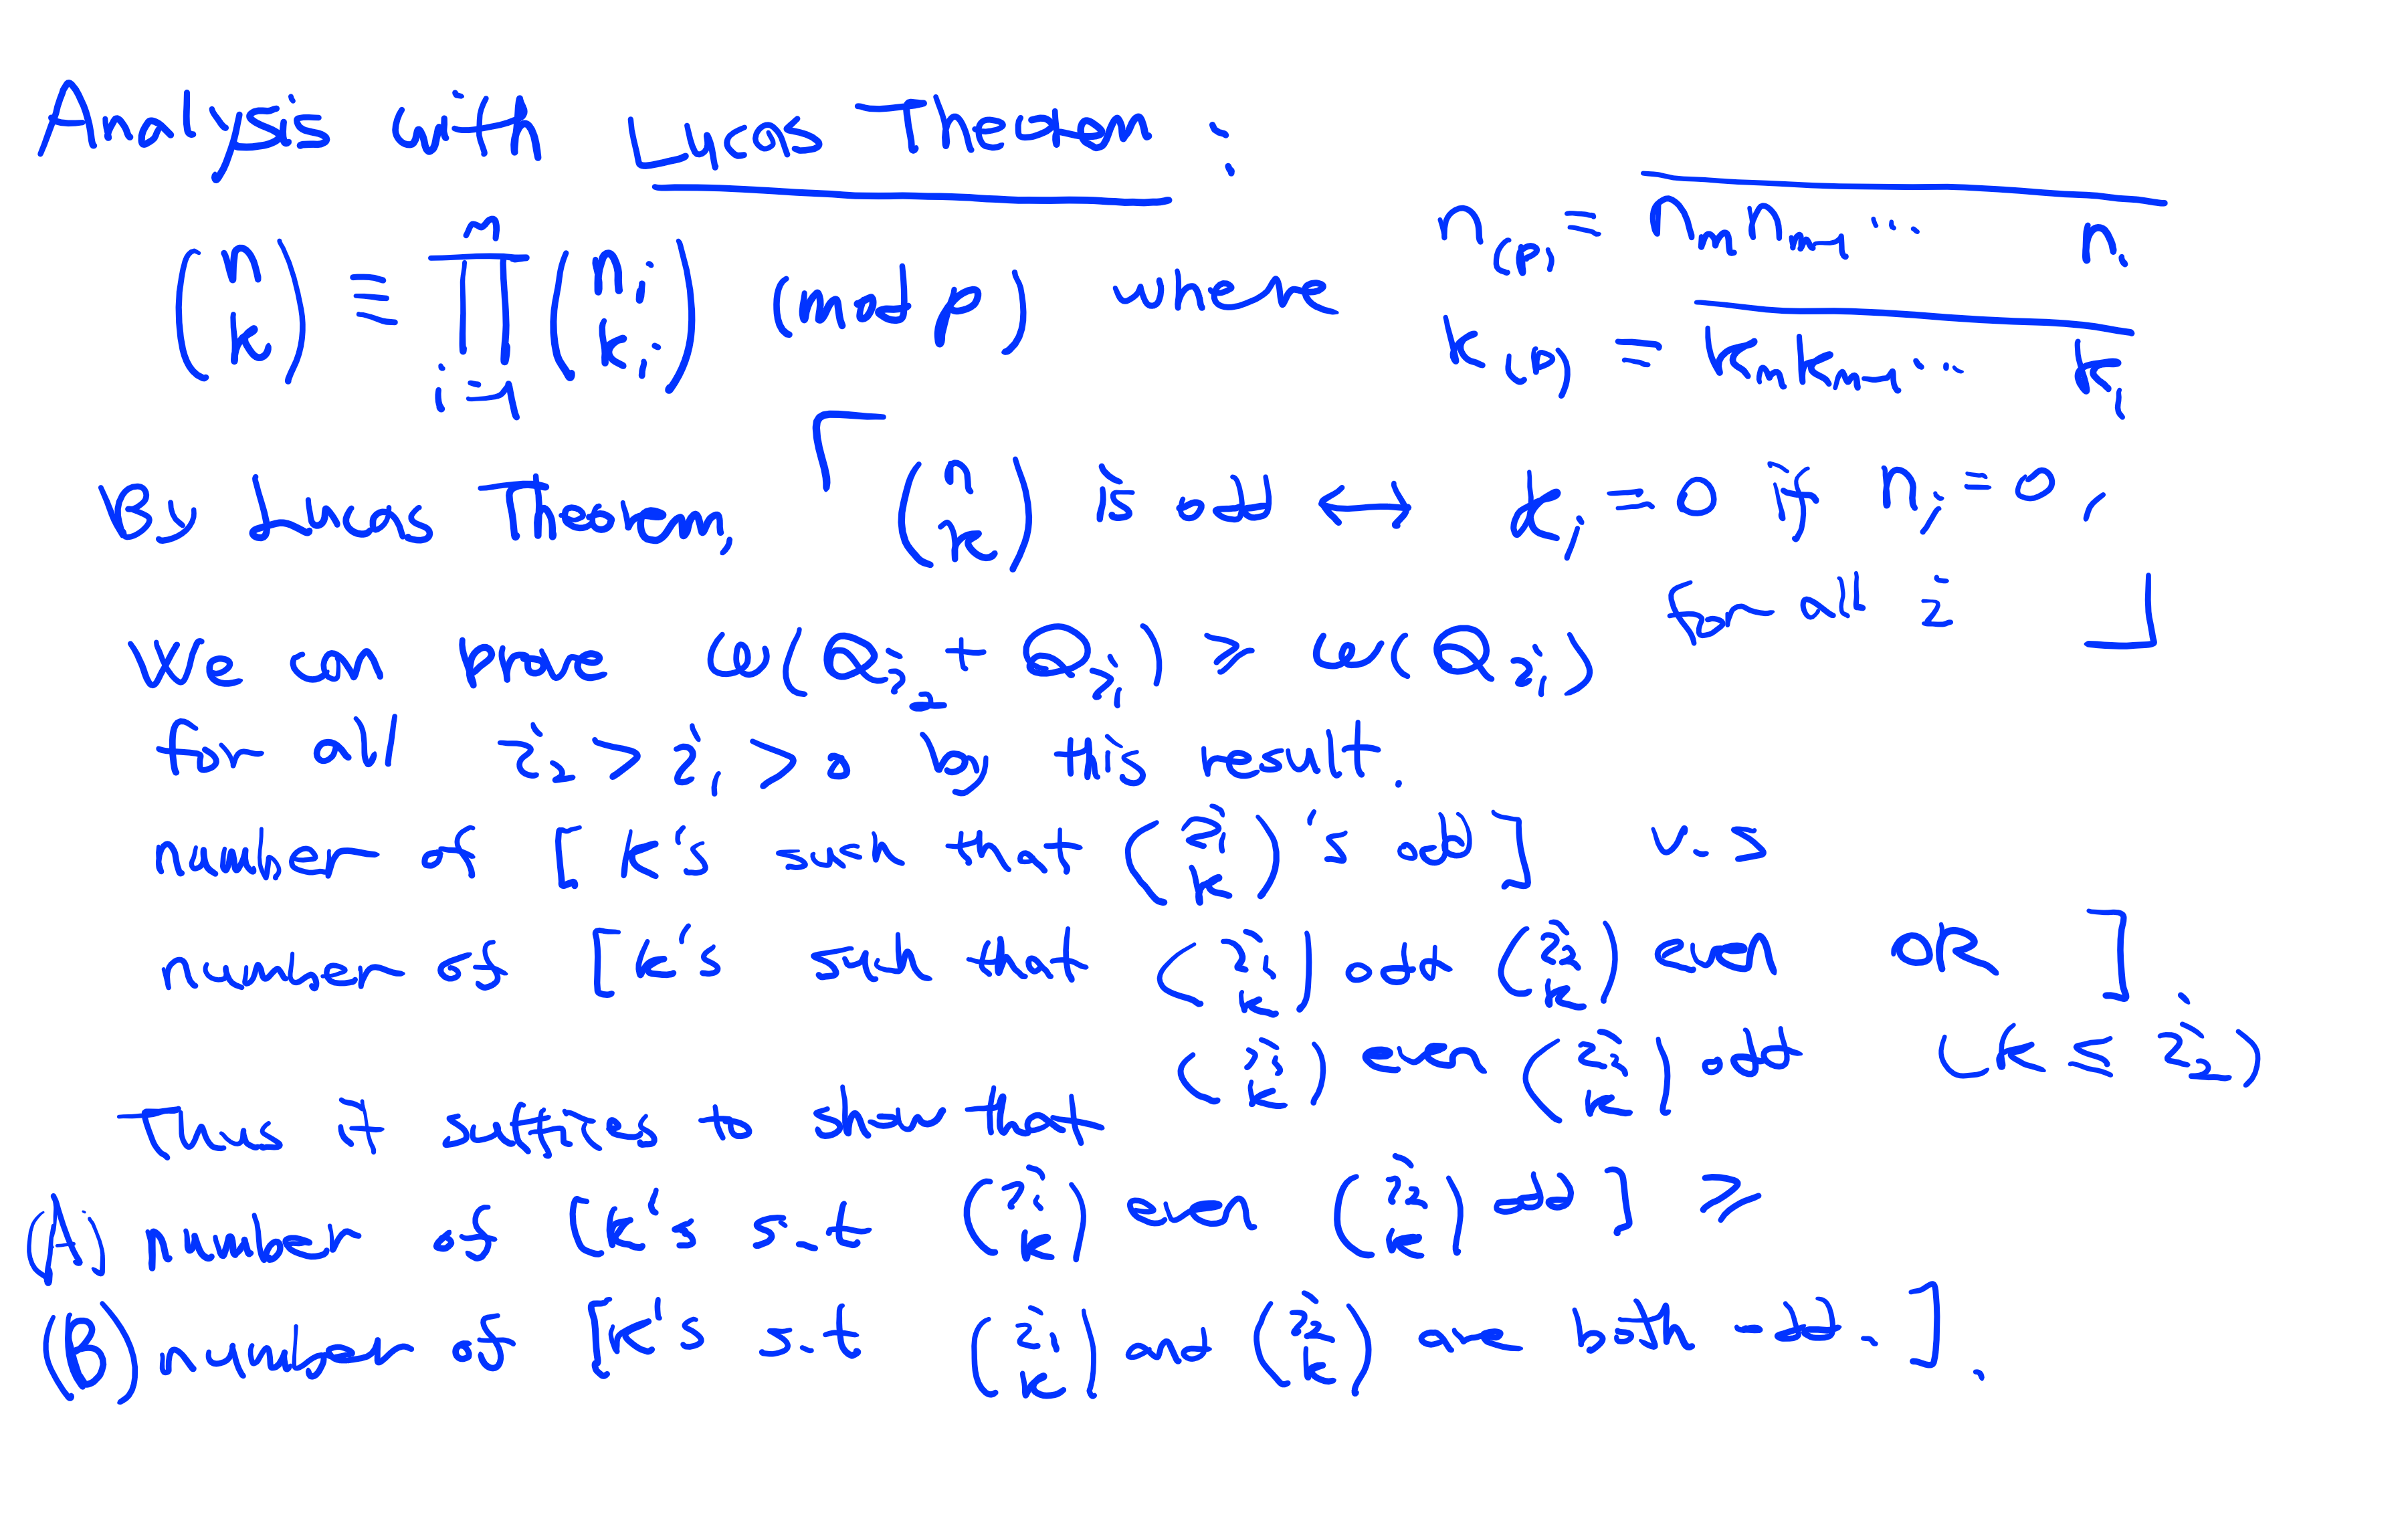 Analysis with Lucas Theorem :
(n k) ≡ ∏_{i=1}^{m} (n_i k_i) (mod p) where n_(p) = n_m n_{m-1} ... n_1
k_(p) = k_m k_{m-1} ... k_1
By Lucas Theorem, ⌈ (n k) is odd ↔ k_i = 0 if n_i = 0,
for all i ⌋
We can prove ω(Q_{i_2} + Q_{i_1}) ≥ ω(Q_{i_1})
for all i_2 > i_1 > 0 by this result.
number of [k's such that (i_1 k) is odd] v.s
number of [k's such that (i_1 k) odd (i_2 k) even OR ].
(i_1 k) even (i_2 k) odd (k ≤ i_2)
Thus it suffices to show that
(A) number of [k's s.t (i_1 k) even (i_2 k) odd] ≥
(B) number of [k's s.t (i_1 k) and (i_2 k) are both odd.].